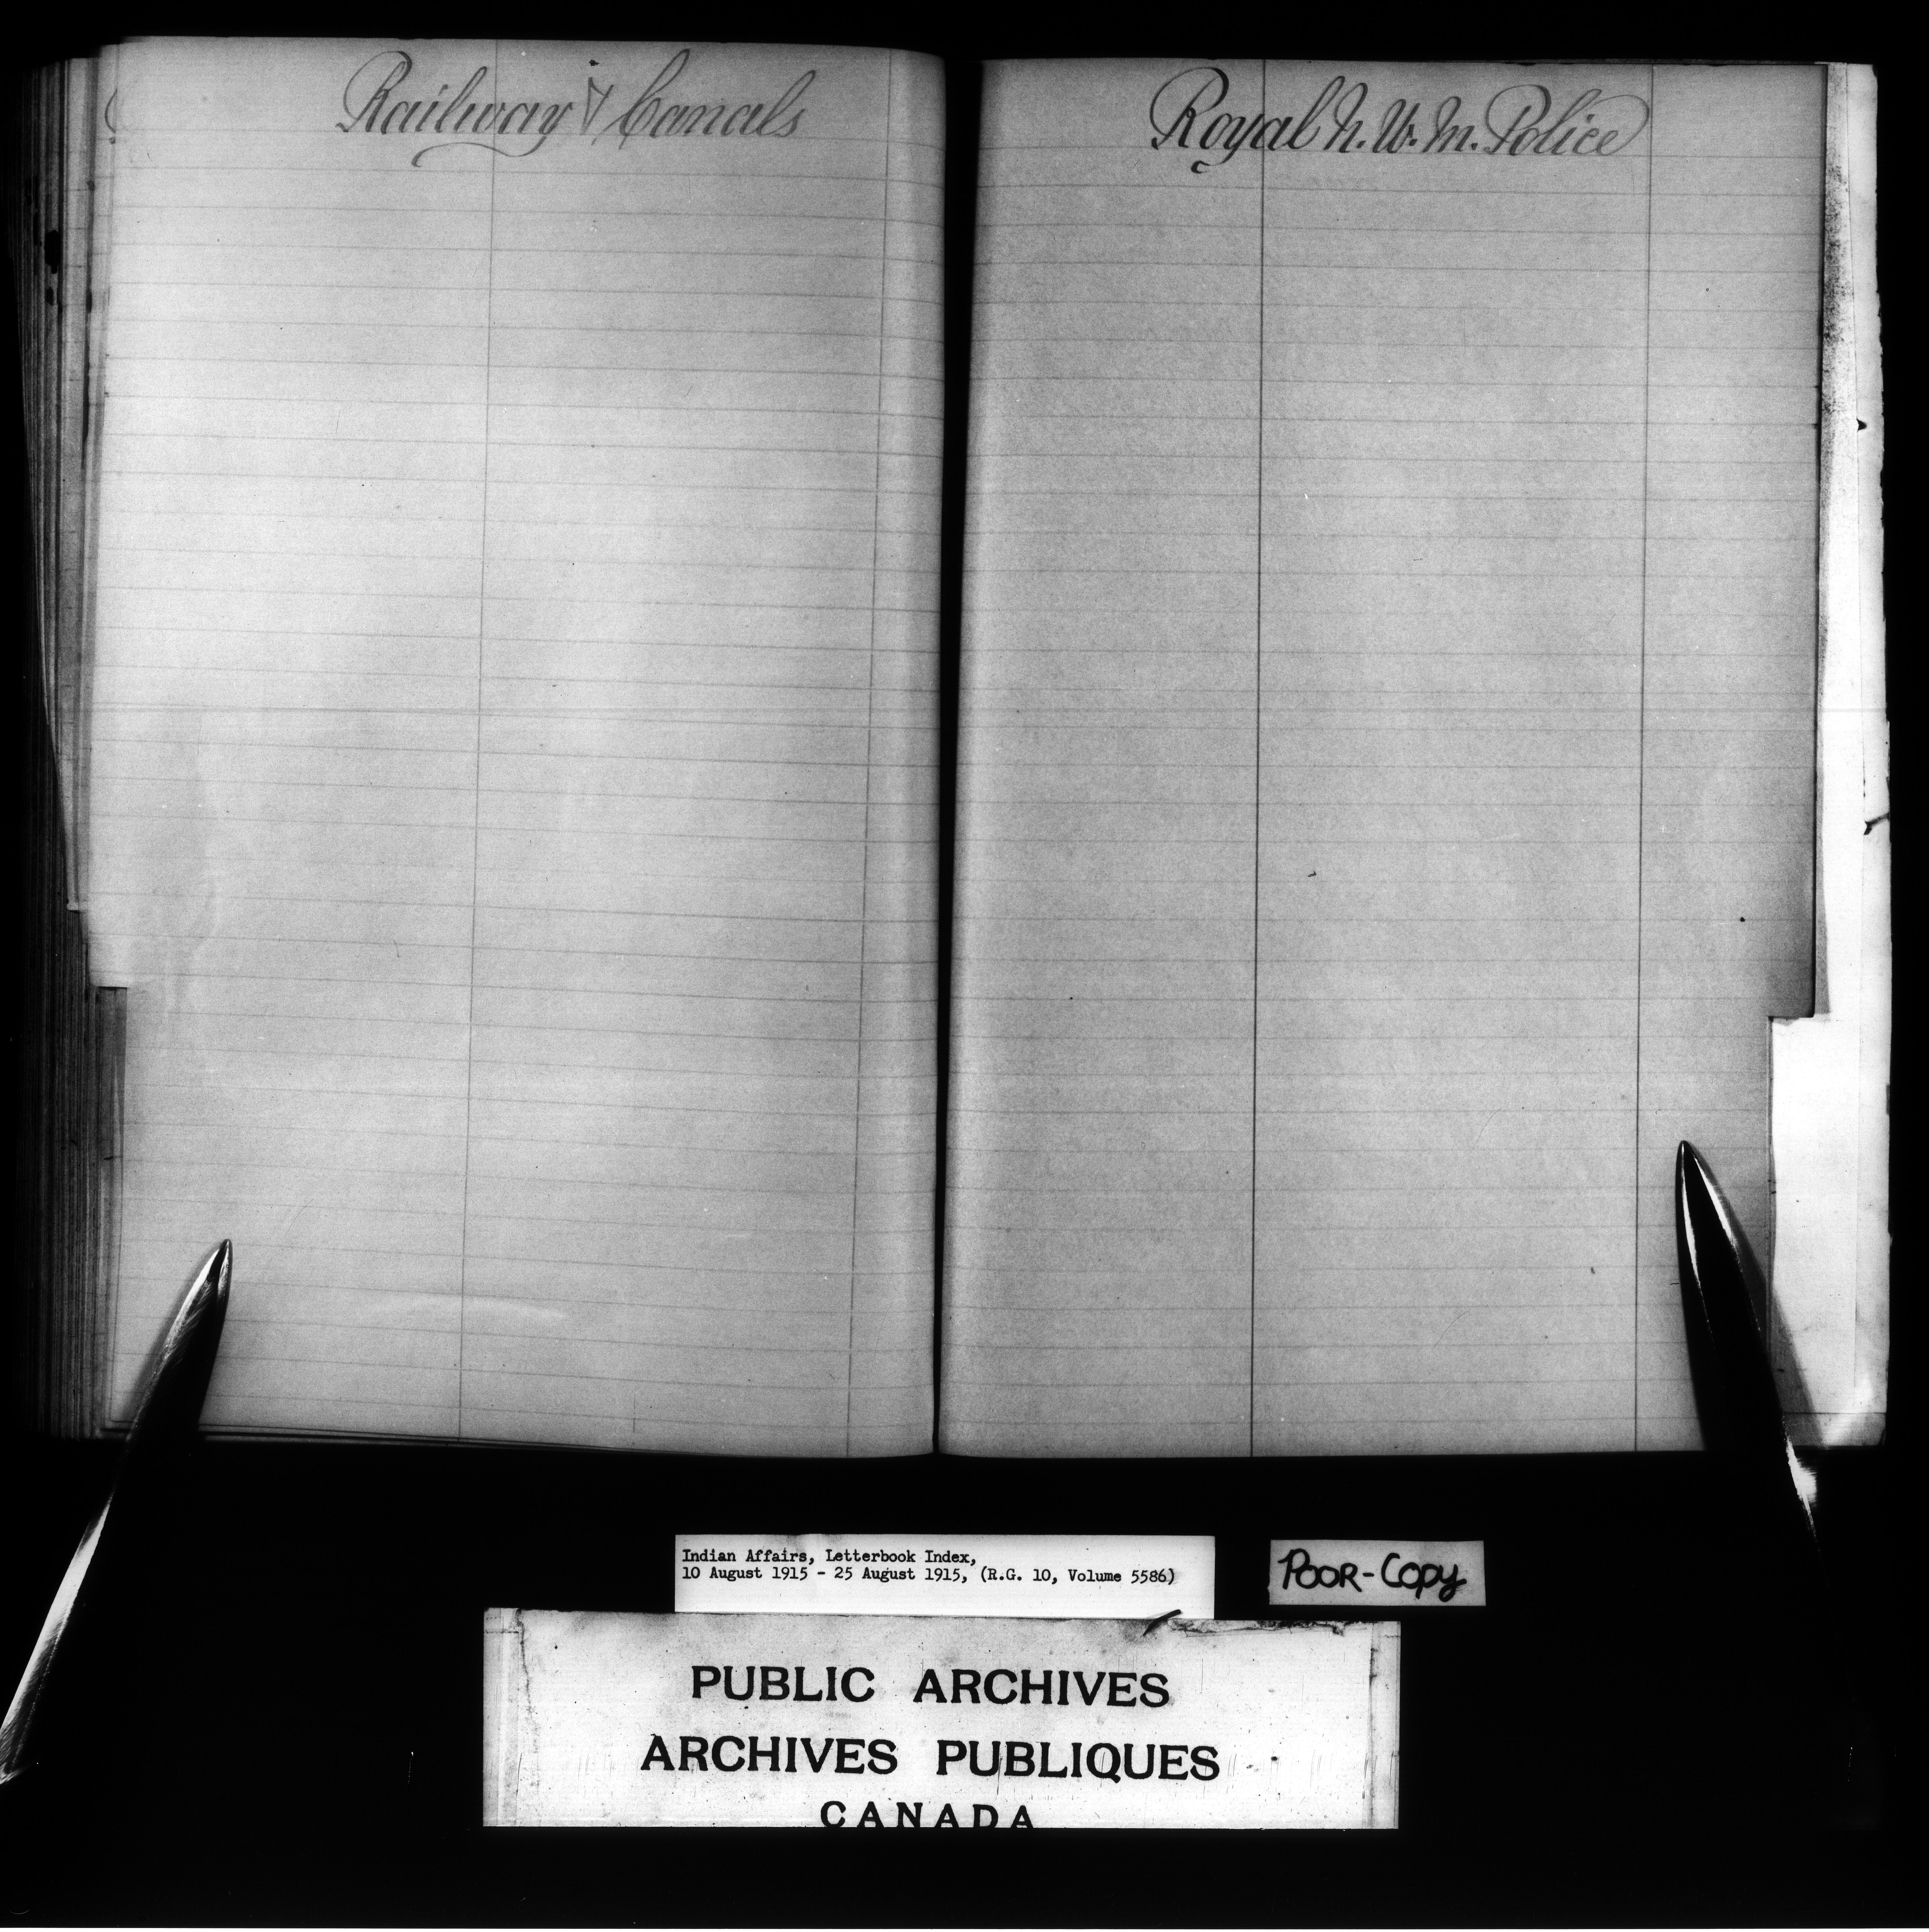 Railway & Canals
Royal N. W. M. Police
Indian Affairs, Letterbook Index,
10 August 1915 - 25 August 1915, (R.G. 10, Volume 5586)
POOR-COPY
PUBLIC ARCHIVES
ARCHIVES PUBLIQUES
CANADA